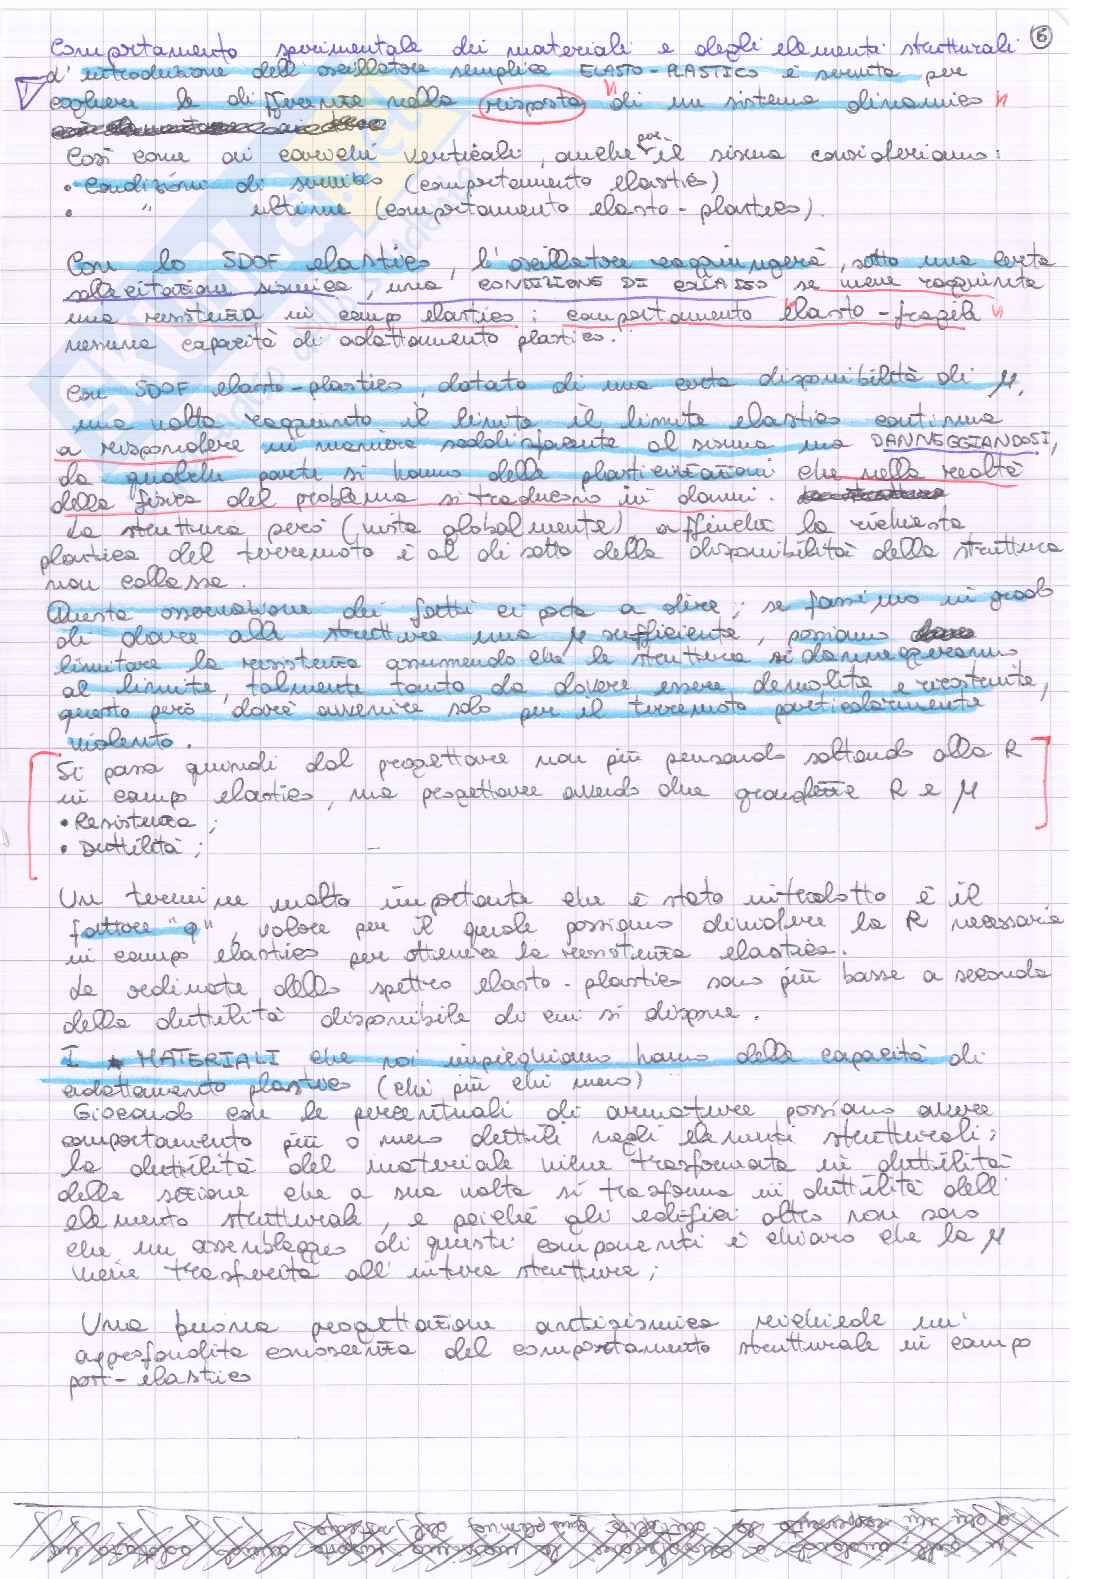 Comportamento sperimentale dei materiali e degli elementi strutturali ⑥
L'introduzione dell'oscillatore semplice ELASTO-PLASTICO è servita per
cogliere le differenze nella risposta di un sistema dinamico
Così come ai carichi verticali, anche per il sisma consideriamo:
• Condizioni di servizio (comportamento elastico)
• " ultime (comportamento elasto-plastico).
Con lo SDOF elastico, l'oscillatore raggiungerà, sotto una certa
sollecitazione sismica, una CONDIZIONE DI COLLASSO se viene raggiunta
una resistenza in campo elastico; comportamento elasto-fragile
nessuna capacità di adattamento plastico.
Con SDOF elasto-plastico, dotato di una certa disponibilità di μ,
una volta raggiunto il limite il limite elastico continua
a rispondere in maniera soddisfacente al sisma ma DANNEGGIANDOSI,
da qualche parte si hanno delle plasticizzazioni che nella realtà
della fisica del problema si traducono in danni.
La struttura però (vista globalmente) affinché la richiesta
plastica del terremoto è al di sotto della disponibilità della struttura
non collassa.
Questa osservazione dei fatti ci porta a dire; se fossimo in grado
di dare alla struttura una μ sufficiente, possiamo
limitare la resistenza assumendo che le strutture si danneggeranno
al limite, talmente tanto da dovere essere demolite e ricostruite,
questo però dovrà avvenire solo per il terremoto particolarmente
violento.
Si passa quindi dal progettare non più pensando soltando alla R
in campo elastico, ma progettare avendo due grandezze R e μ
• Resistenza;
• Duttilità;
Un termine molto importante che è stato introdotto è il
fattore "q", valore per il quale possiamo dividere la R necessaria
in campo elastico per ottenere la resistenza elastica.
Le ordinate dello spettro elasto-plastico sono più basse a seconda
della duttilità disponibile di cui si dispone.
I MATERIALI che noi impieghiamo hanno delle capacità di
adattamento plastico (chi più chi meno)
Giocando con le percentuali di armature possiamo avere
comportamento più o meno duttili negli elementi strutturali;
la duttilità del materiale viene trasformata in duttilità
della sezione che a sua volta si trasforma in duttilità dell'
elemento strutturale, e poiché gli edifici altro non sono
che un assemblaggio di questi componenti è chiaro che la μ
viene trasferita all'intera struttura;
Una buona progettazione antisismica richiede un'
approfondita conoscenza del comportamento strutturale in campo
post-elastico